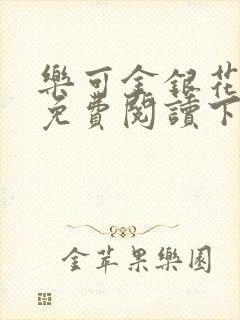 樂可金銀花
免費閱讀下
金苹果樂園